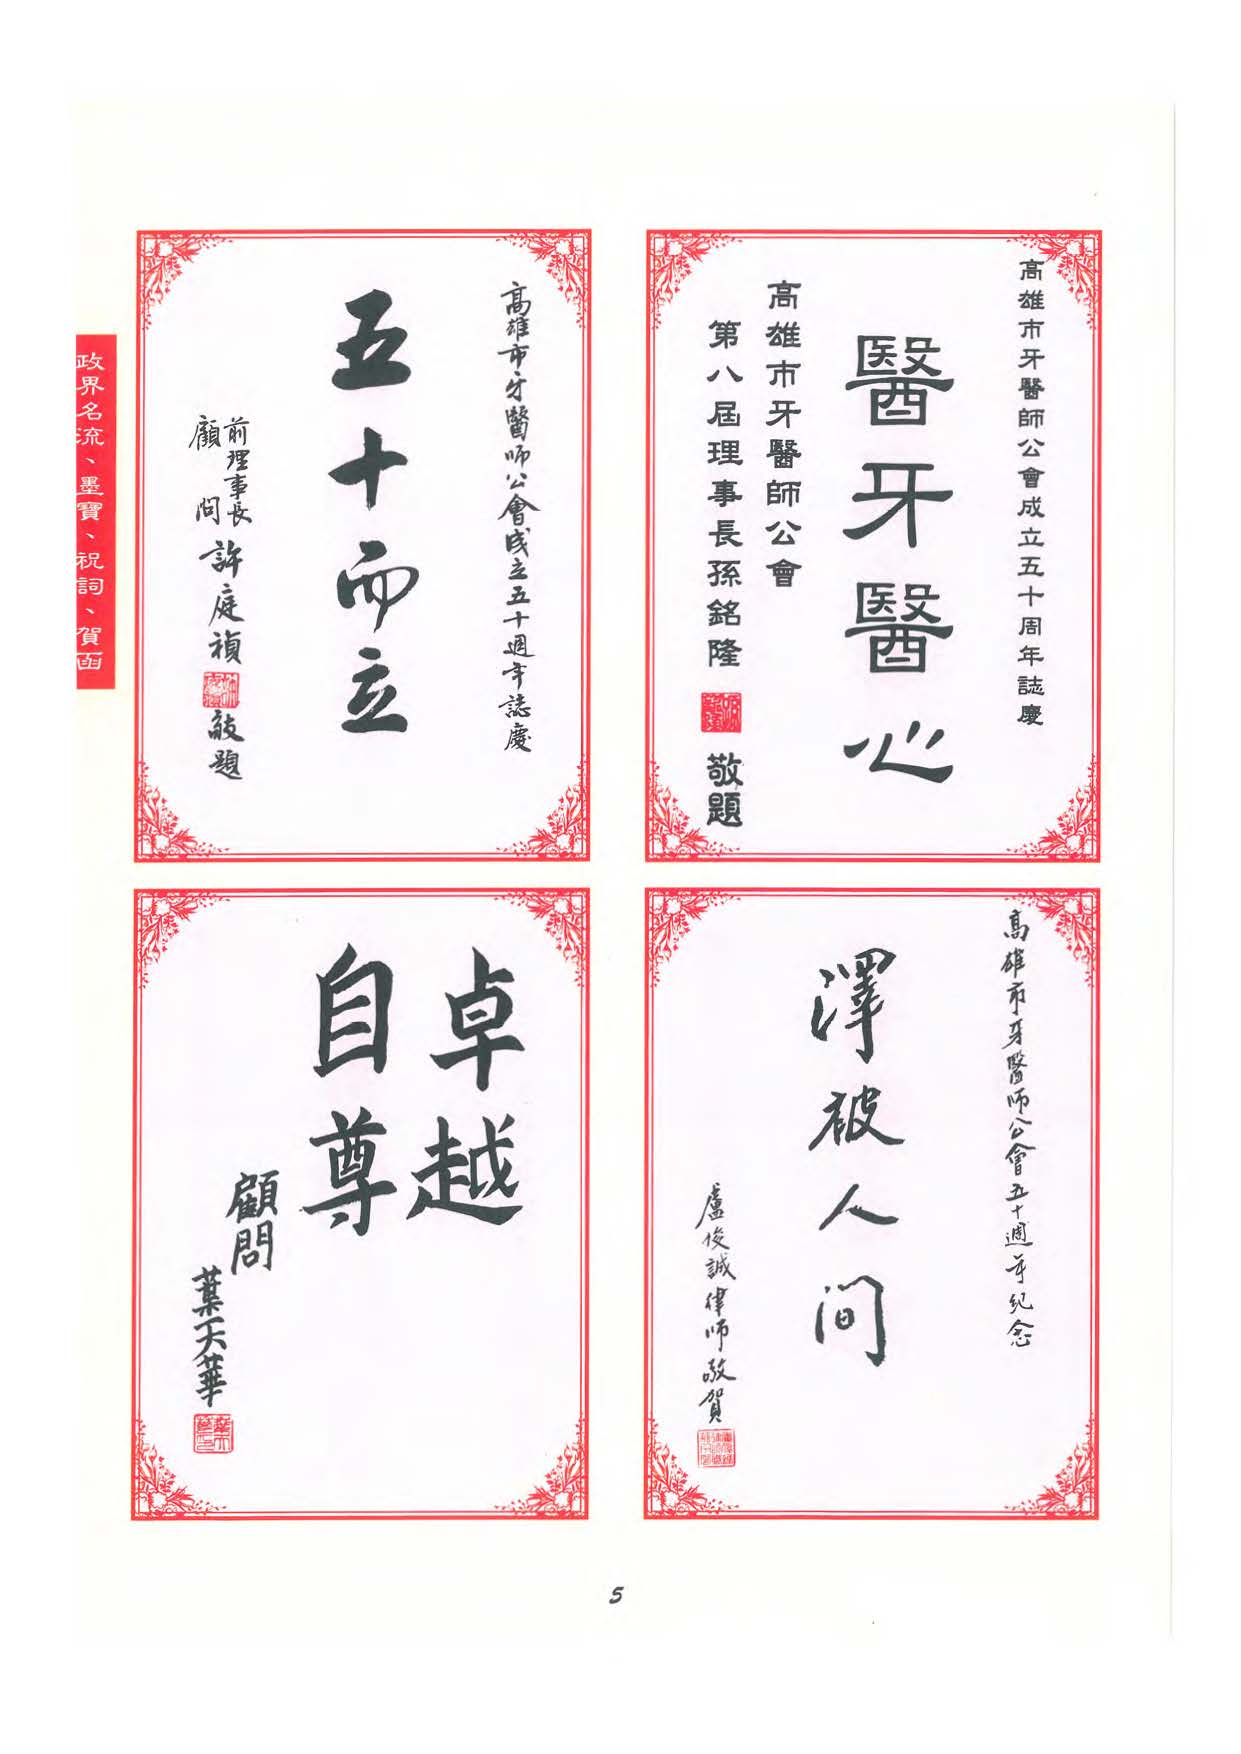 高雄市牙醫師公會成立五十周年誌慶
醫牙醫心
高雄市牙醫師公會
第八屆理事長孫銘隆
敬題
高雄市牙醫師公會成立五十週年誌慶
五十而立
前理事長
顧問
許庭禎
敬題
高雄市牙醫師公會五十週年紀念
澤被人間
盧俊誠律師敬賀
卓越
自尊
顧問
葉天華
政界名流、墨寶、祝詞、賀函
5